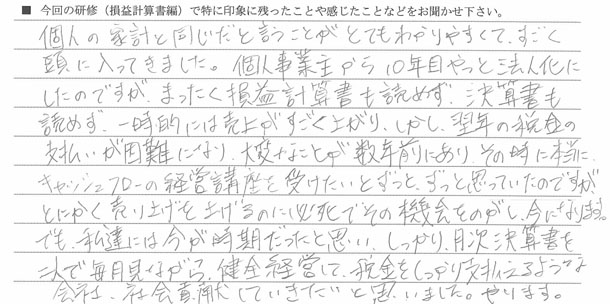 ■ 今回の研修（損益計算書編）で特に印象に残ったことや感じたことなどをお聞かせ下さい。
個人の家計と同じだと言うことがとてもわかりやすくて、すごく
頭に入ってきました。個人事業主から10年目やっと法人化に
したのですが、まったく損益計算書も読めず、決算書も
読めず、一時的には売上がすごく上がり、しかし、翌年の税金の
支払いが困難になり、大変なことが数年前にあり、その時に本当に
キャッシュフローの経営講座を受けたいとずっと、ずっと思っていたのですが
とにかく売り上げを上げるのに必死でその機会をのがし、今になります。
でも、私達には今が時期だったと思い、しっかり、月次決算書を
二人で毎月見ながら、健全経営して、税金をしっかり支払えるような
会社、社会貢献していきたいと思いました。やります。